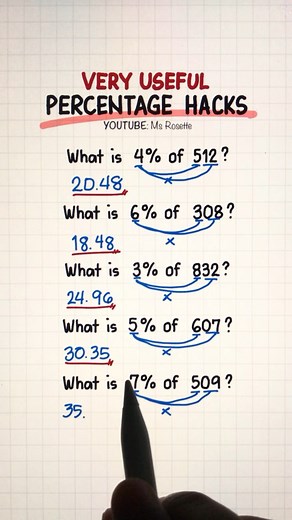 VERY USEFUL
PERCENTAGE HACKS
YOUTUBE: Ms Rosette
What is 4% of 512?
×
20.48
What is 6% of 308?
×
18.48
What is 3% of 832?
×
24.96
What is 5% of 607?
×
30.35
What is 7% of 509?
×
35.